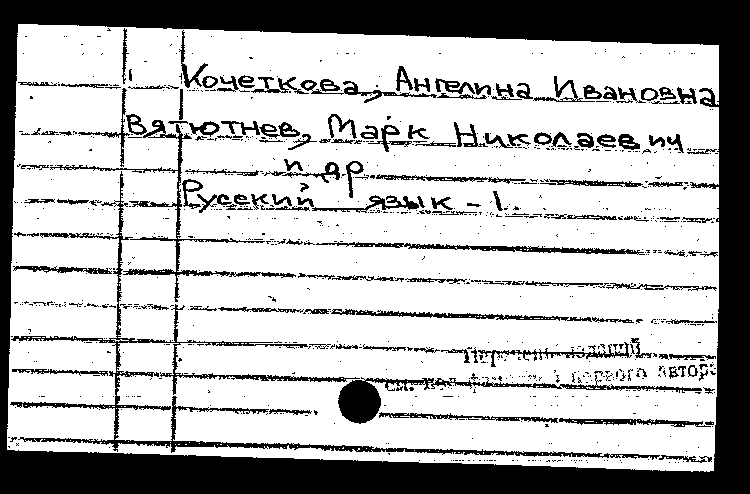 Кочеткова, Ангелина Ивановна
Вятютнев, Марк Николаевич
и др
Русский язык - 1.
Перечень изданий
см. под фамилией первого автора